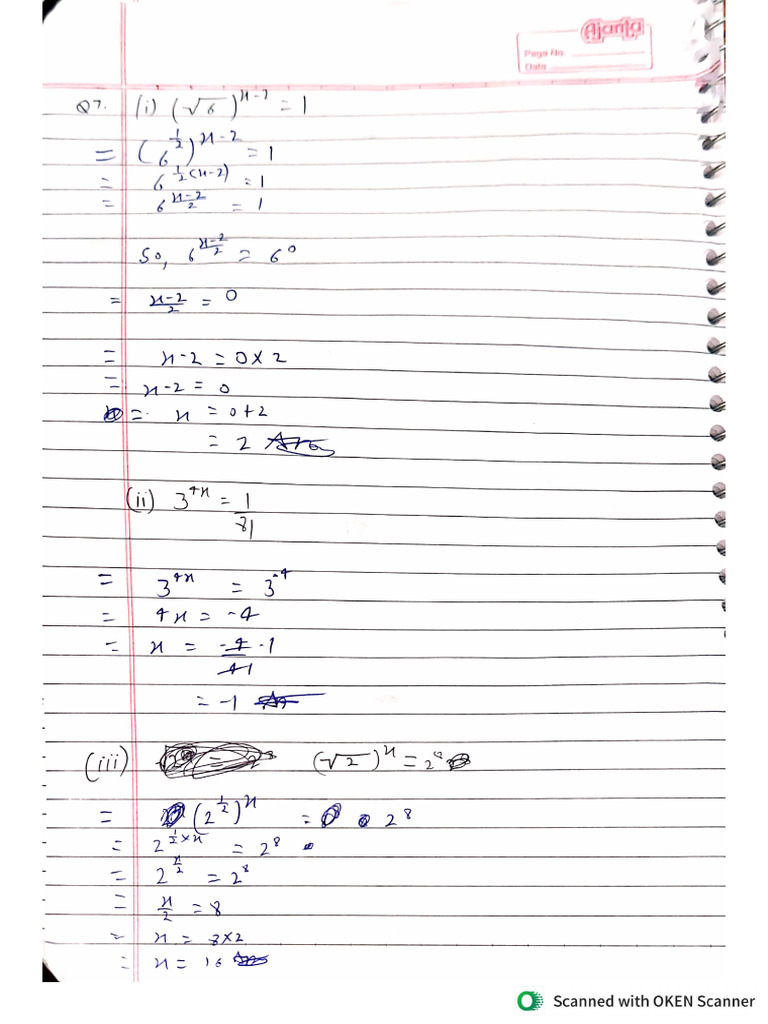 Ajanta
Page No.
Date
Q7. (i) (√6)^(x-2) = 1
= (6^(1/2))^(x-2) = 1
= 6^(1/2(x-2)) = 1
= 6^((x-2)/2) = 1
So, 6^((x-2)/2) = 6^0
= (x-2)/2 = 0
= x-2 = 0×2
= x-2 = 0
= x = 0+2
= 2 Ans
(ii) 3^(4x) = 1/81
= 3^(4x) = 3^(-4)
= 4x = -4
= x = -4/4 -1
= -1
(iii) (√2)^x = 2^8
= (2^(1/2))^x = 2^8
= 2^(1/2×x) = 2^8
= 2^(x/2) = 2^8
= x/2 = 8
= x = 8×2
= x = 16
Scanned with OKEN Scanner